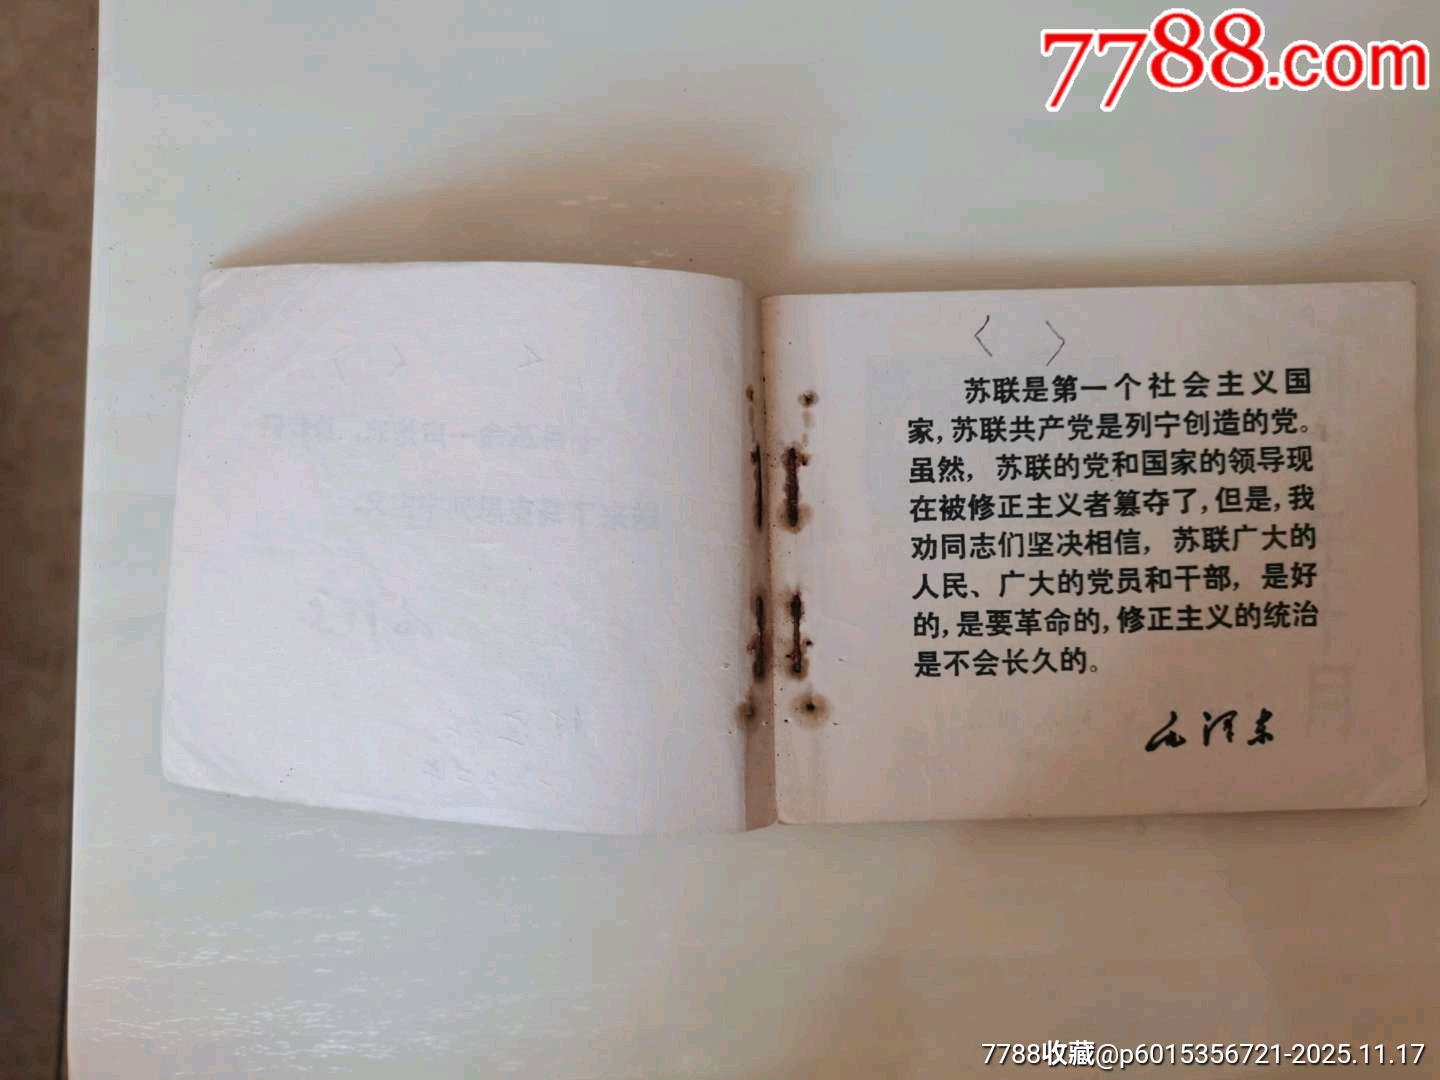 7788.com
苏联是第一个社会主义国
家，苏联共产党是列宁创造的党。
虽然，苏联的党和国家的领导现
在被修正主义者篡夺了，但是，我
劝同志们坚决相信，苏联广大的
人民、广大的党员和干部，是好
的，是要革命的，修正主义的统治
是不会长久的。
毛泽东
7788收藏@p6015356721-2025.11.17